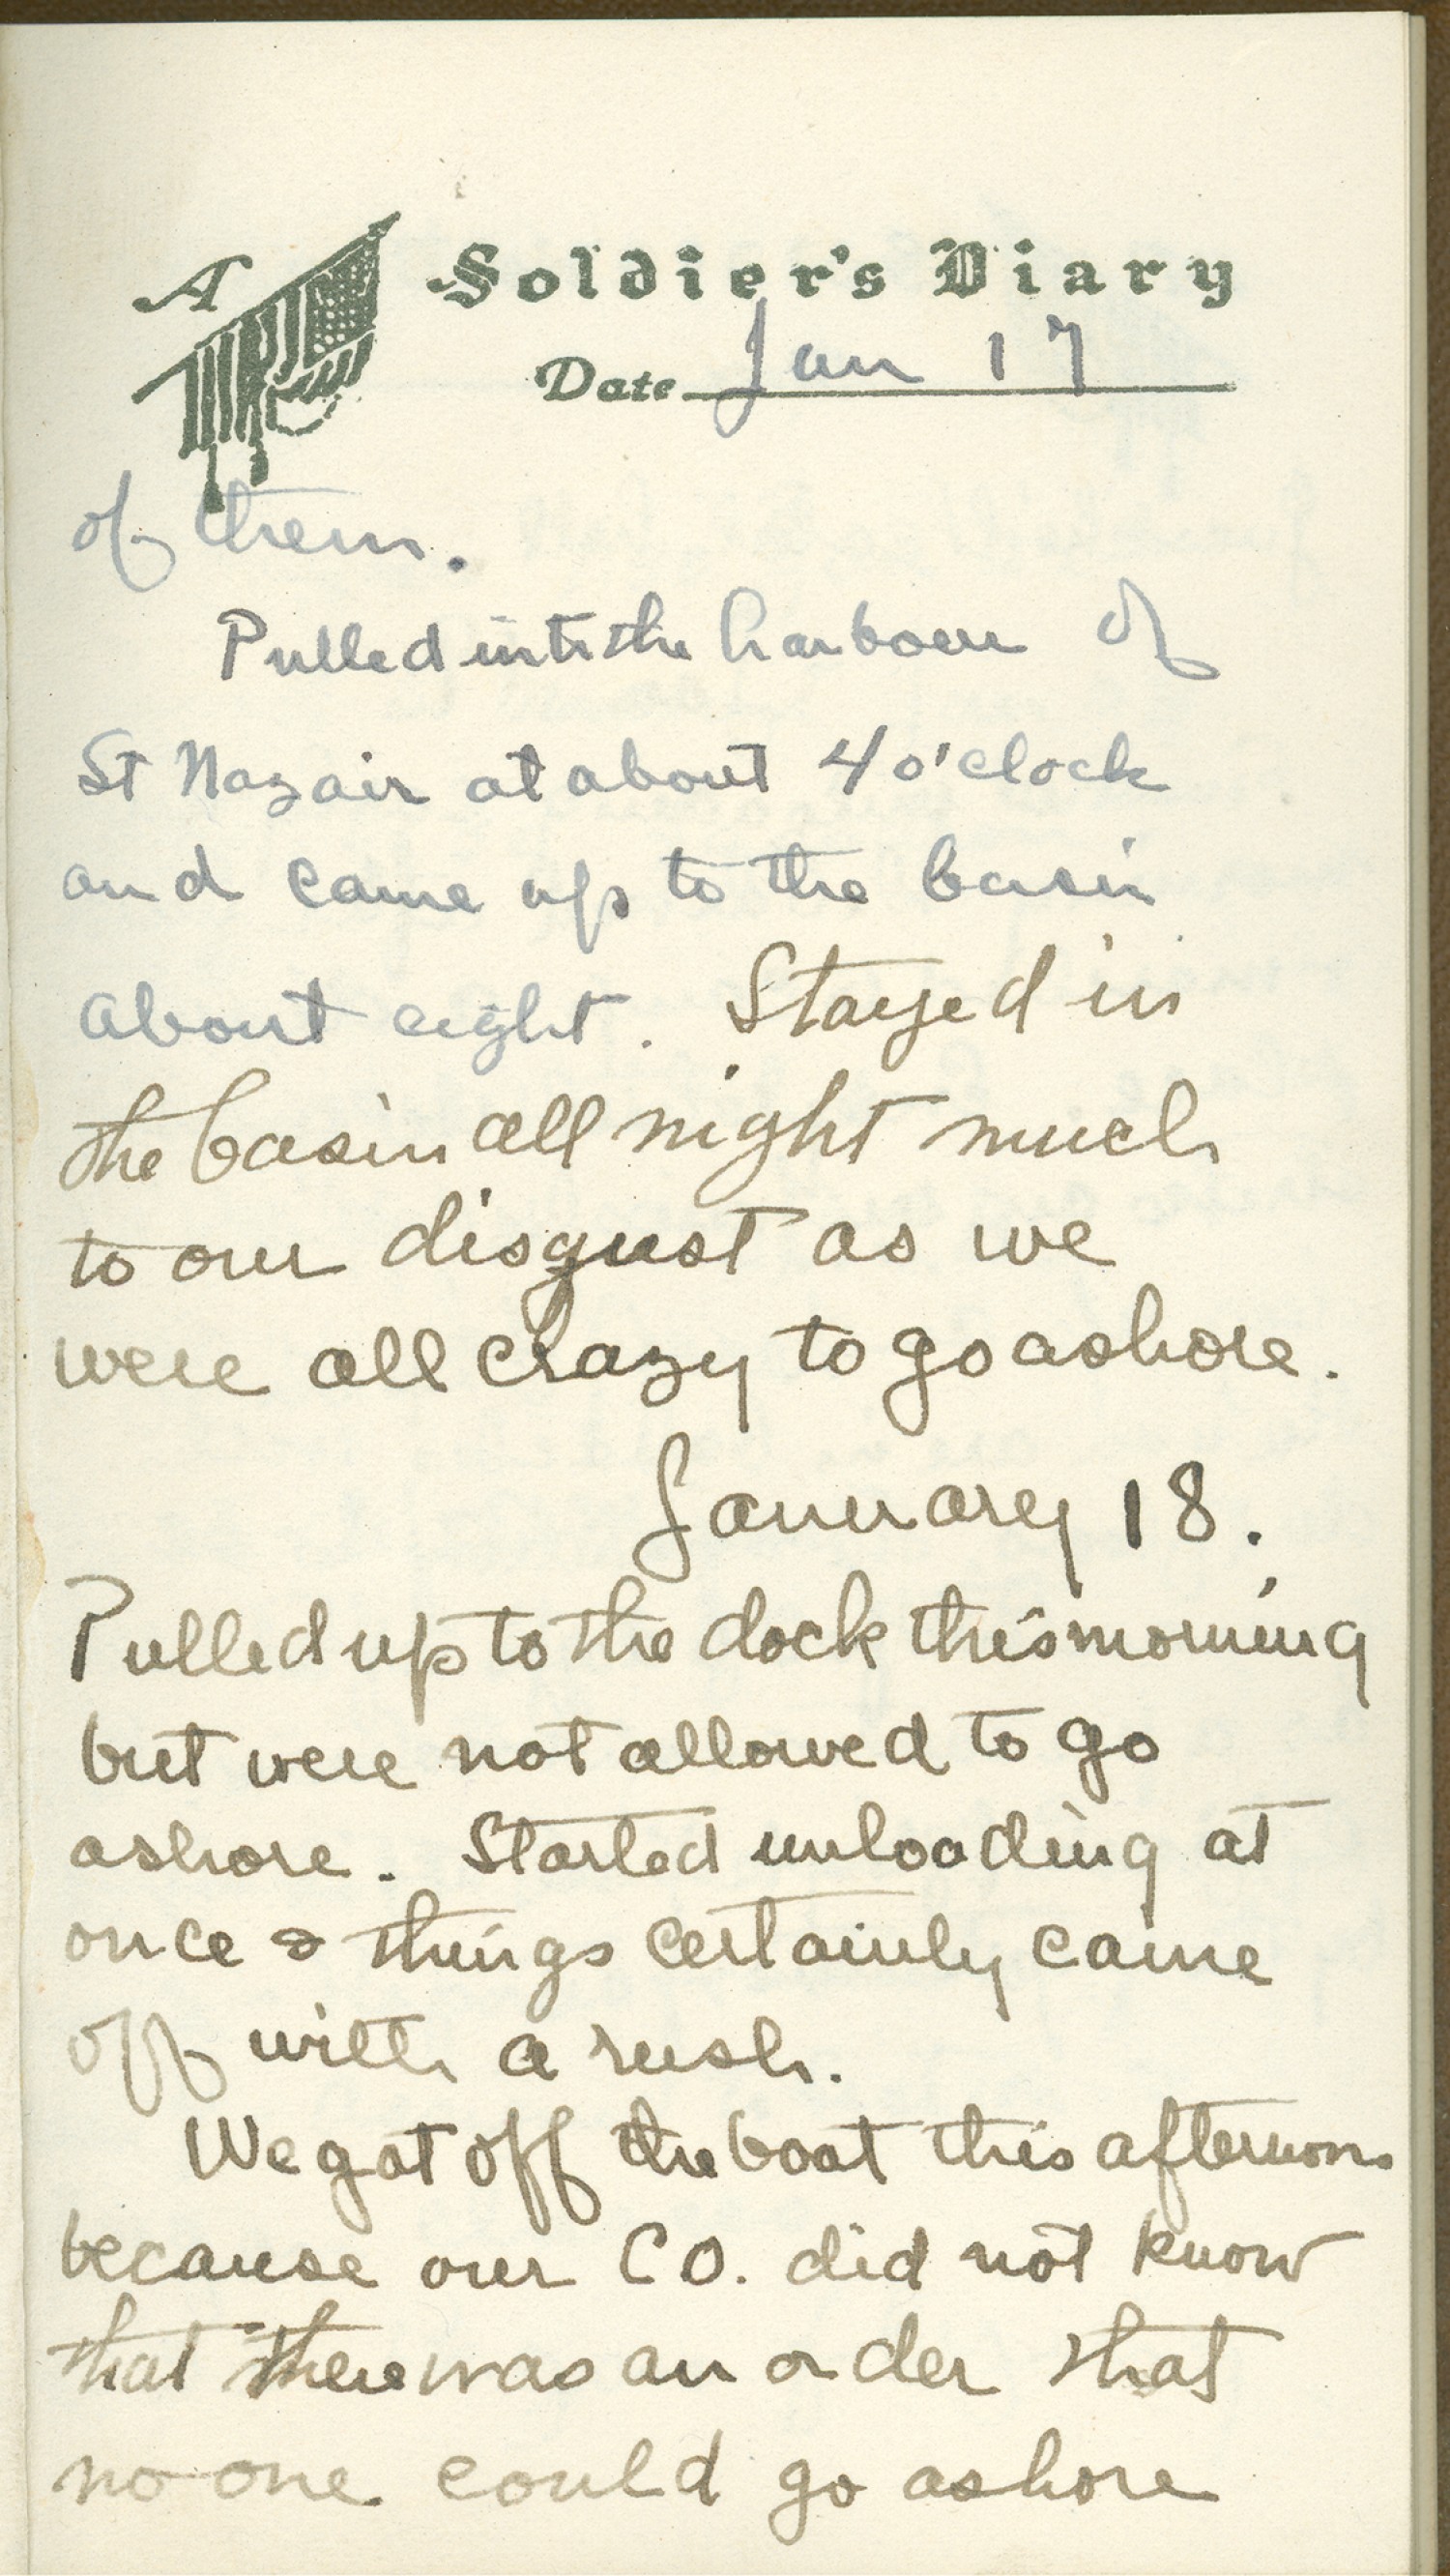 A Soldier's Diary
Date Jan 17
of them.
Pulled into the harbour of
St Nazair at about 4 o'clock
and came up to the basin
about eight. Stayed in
the basin all night much
to our disgust as we
were all crazy to go ashore.
January 18.
Pulled up to the dock this morning
but were not allowed to go
ashore. Started unloading at
once & things certainly came
off with a rush.
We got off the boat this afternoon
because our CO. did not know
that there was an order that
no one could go ashore